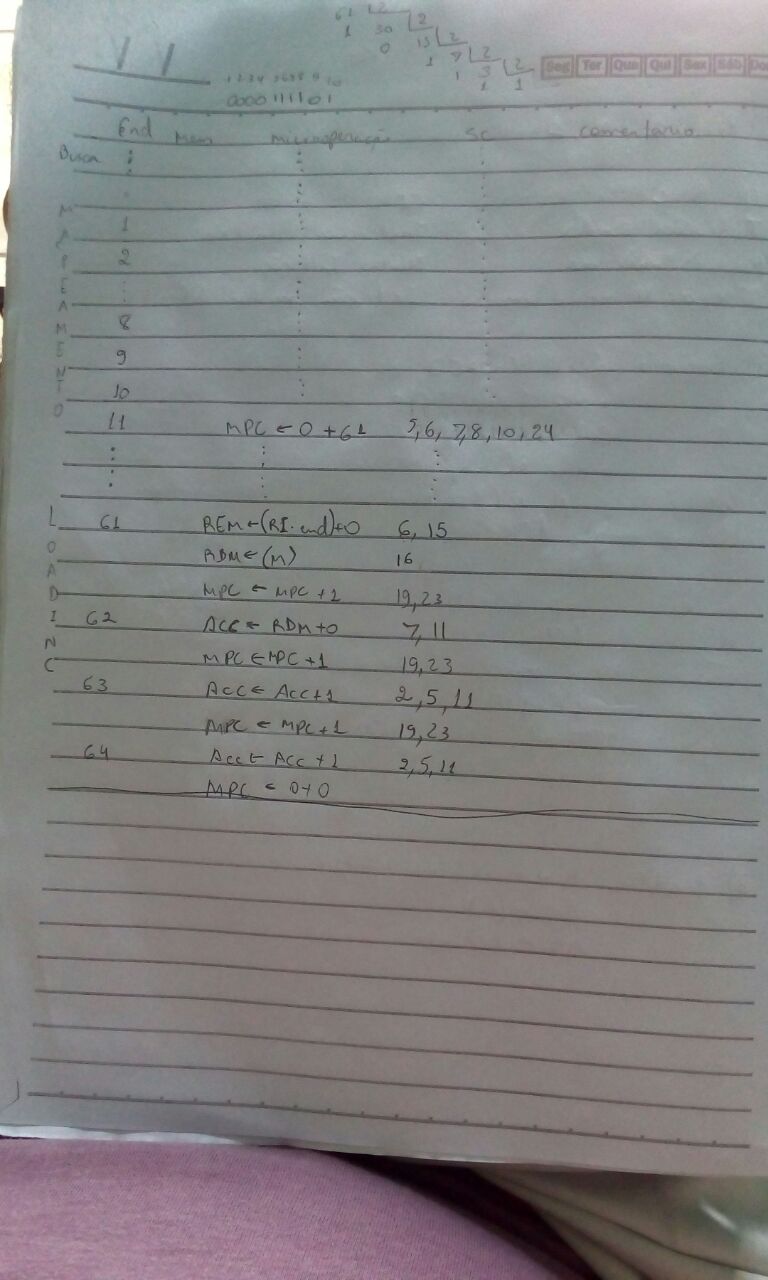 61 2
1 30 2
0 15 2
1 7 2
1 3 2
1 1
Seg Ter Qua Qui Sex Sáb Do
1 2 3 4 5 6 7 8 9 10
0000111101
End Mem microoperação SC comentario
Busca
MAPEAMENTO
1
2
8
9
10
11 MPC ← 0 + 61 5,6, 7,8, 10, 24
LOADINC
61 REM ← (RI.end)+0 6, 15
RDM ← (M) 16
MPC ← MPC +1 19,23
62 ACC ← RDM+0 7, 11
MPC ← MPC +1 19,23
63 ACC ← ACC+1 2, 5, 11
MPC ← MPC+1 19,23
64 Acc ← Acc +1 2,5,11
MPC ← 0+0